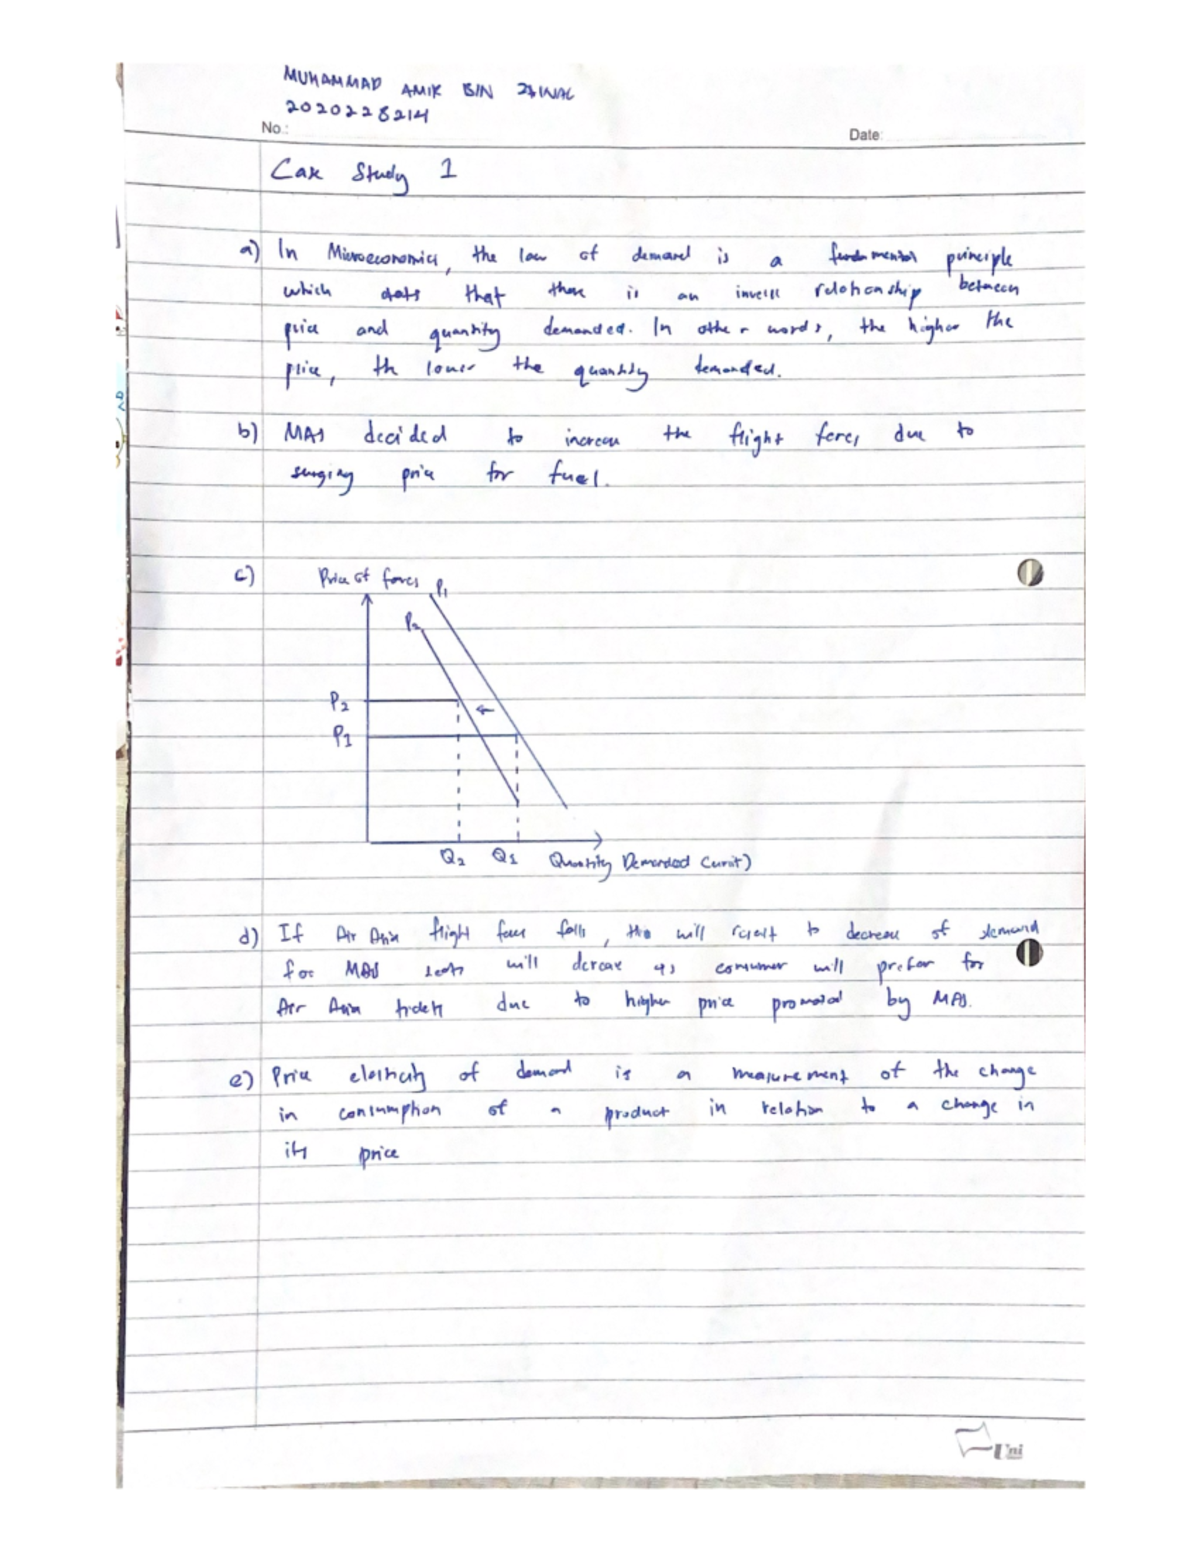 MUHAMMAD AMIR BIN
2020228214
No.:
Date:
Case Study 1
a) In Microeconomics, the law of demand is a fundamental principle
which states that there is an inverse relationship between
price and quantity demanded. In other words, the higher the
price, th lower the quantity demanded.
b) MAS decided to increase the flight fares due to
surging price for fuel.
c)
Price of fares
P1
P2
P2
P1
Q2 Q1 Quantity Demanded (unit)
d) If Air Asia flight fares falls, will result to decrease of demand
for MAS seats will decrease as consumer will prefer for
Air Asia tickets due to higher price promoted by MAS.
e) Price elasticity of demand is a measurement of the change
in consumption of a product in relation to a change in
its price
Uni